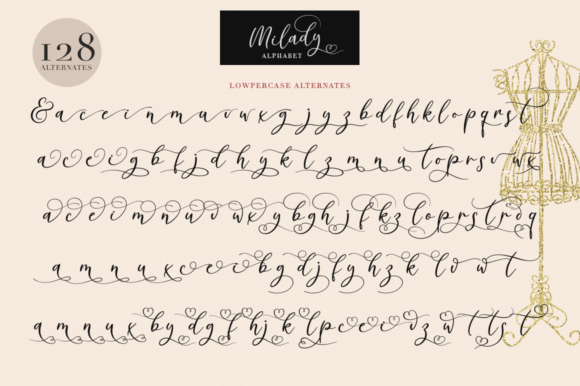 128
ALTERNATES
Milady
ALPHABET
LOWPERCASE ALTERNATES
&aceinmuvwxgjyzbdfhklopqrst
aceigbfjdhyklzmnutoprsvwx
aceimnuvwxybghjfkzloprstrdq
amnuxceiobgdjfyhzklvwt
amnuxbydgfhjklpceiozwttst